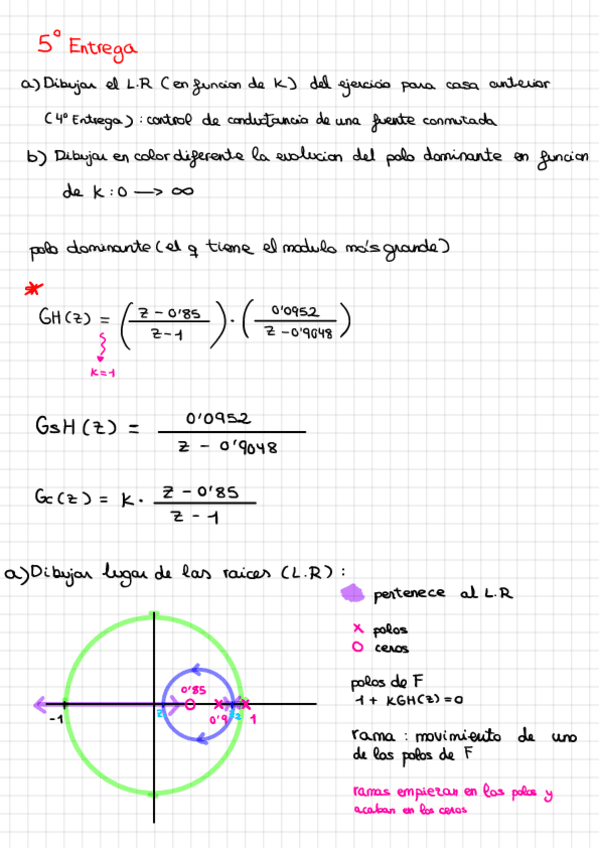 5º Entrega
a) Dibujar el L.R (en funcion de K) del ejercicio para casa anterior
(4º Entrega) : control de conductancia de una fuente conmutada
b) Dibujar en color diferente la evolucion del polo dominante en funcion
de K : 0 → ∞
polo dominante (el q tiene el modulo más grande)
*
GH(z) = ((z - 0'85)/(z - 1)) · (0'0952/(z - 0'9048))
K=1
GsH(z) = 0'0952/(z - 0'9048)
Gc(z) = K · (z - 0'85)/(z - 1)
a) Dibujar lugar de las raices (L.R) :
pertenece al L.R
x polos
o ceros
0'85
-1
z
0'9
1
polos de F
1 + KGH(z) = 0
rama : movimiento de uno
de los polos de F
ramas empiezan en los polos y
acaban en los ceros